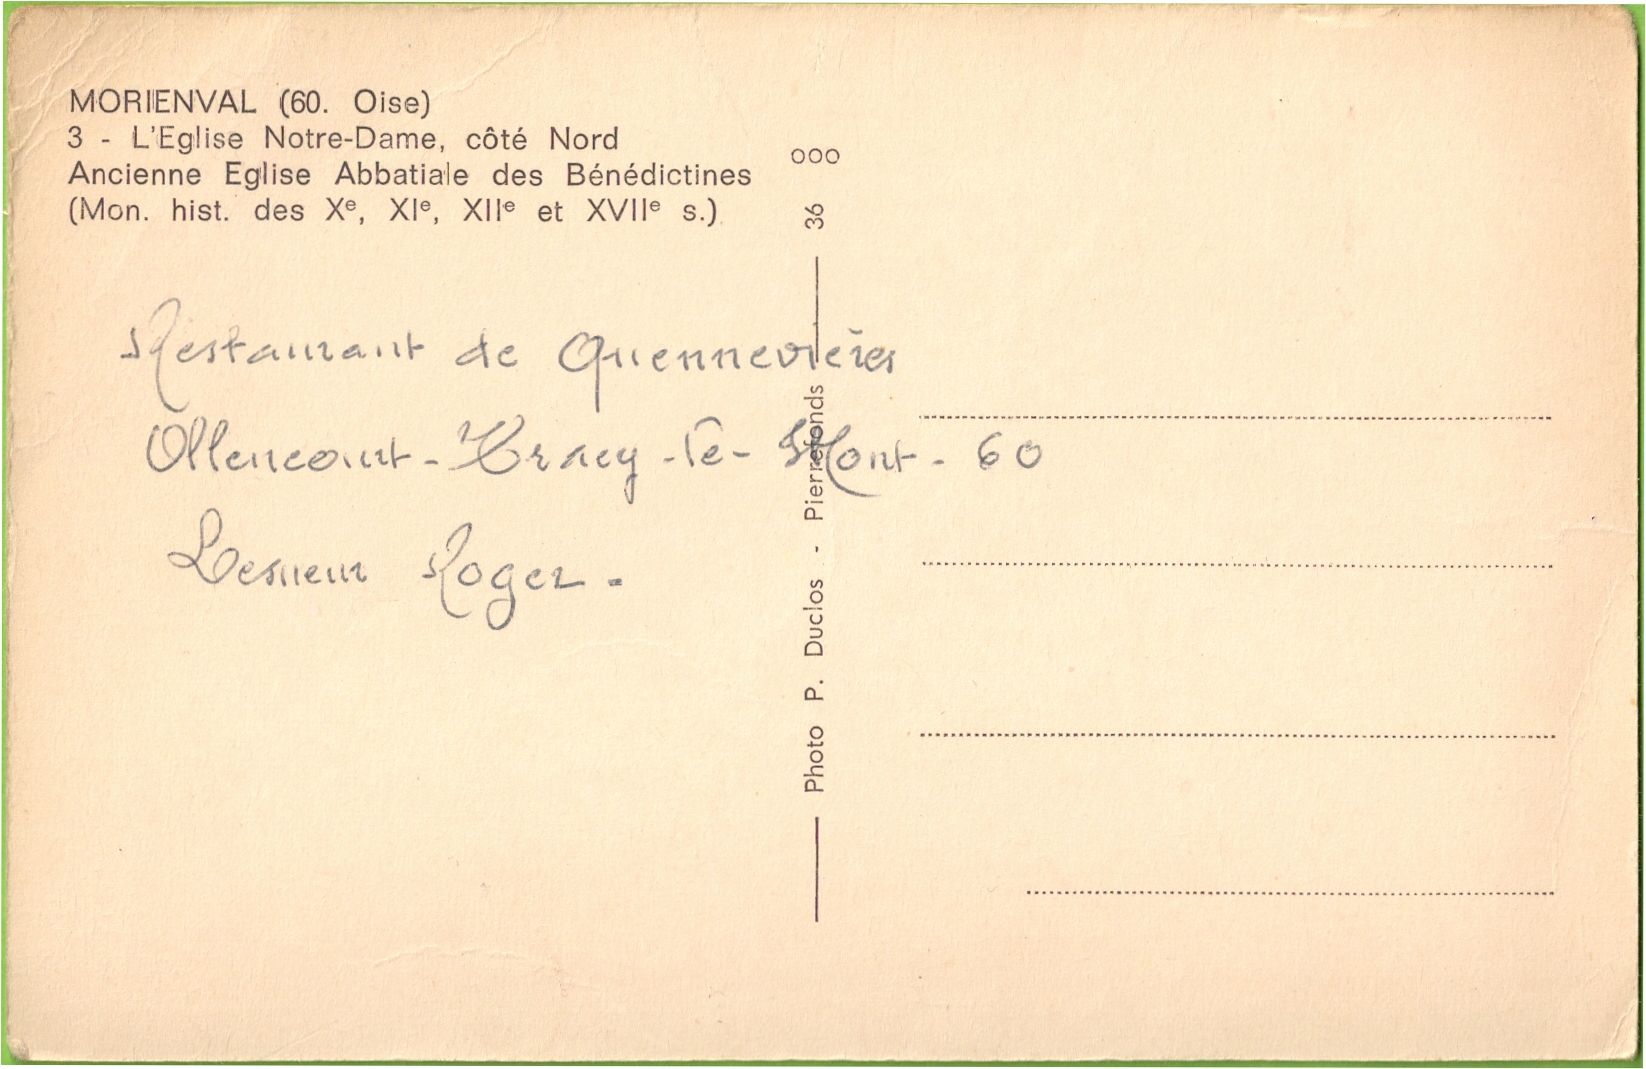 MORIENVAL (60. Oise)
3 - L'Eglise Notre-Dame, côté Nord
Ancienne Eglise Abbatiale des Bénédictines
(Mon. hist. des Xᵉ, XIᵉ, XIIᵉ et XVIIᵉ s.)
Restaurant de Quennevières
Ollencourt - Tracy - le - Mont - 60
Lesueur Roger -
Photo P. Duclos - Pierrefonds
36 000